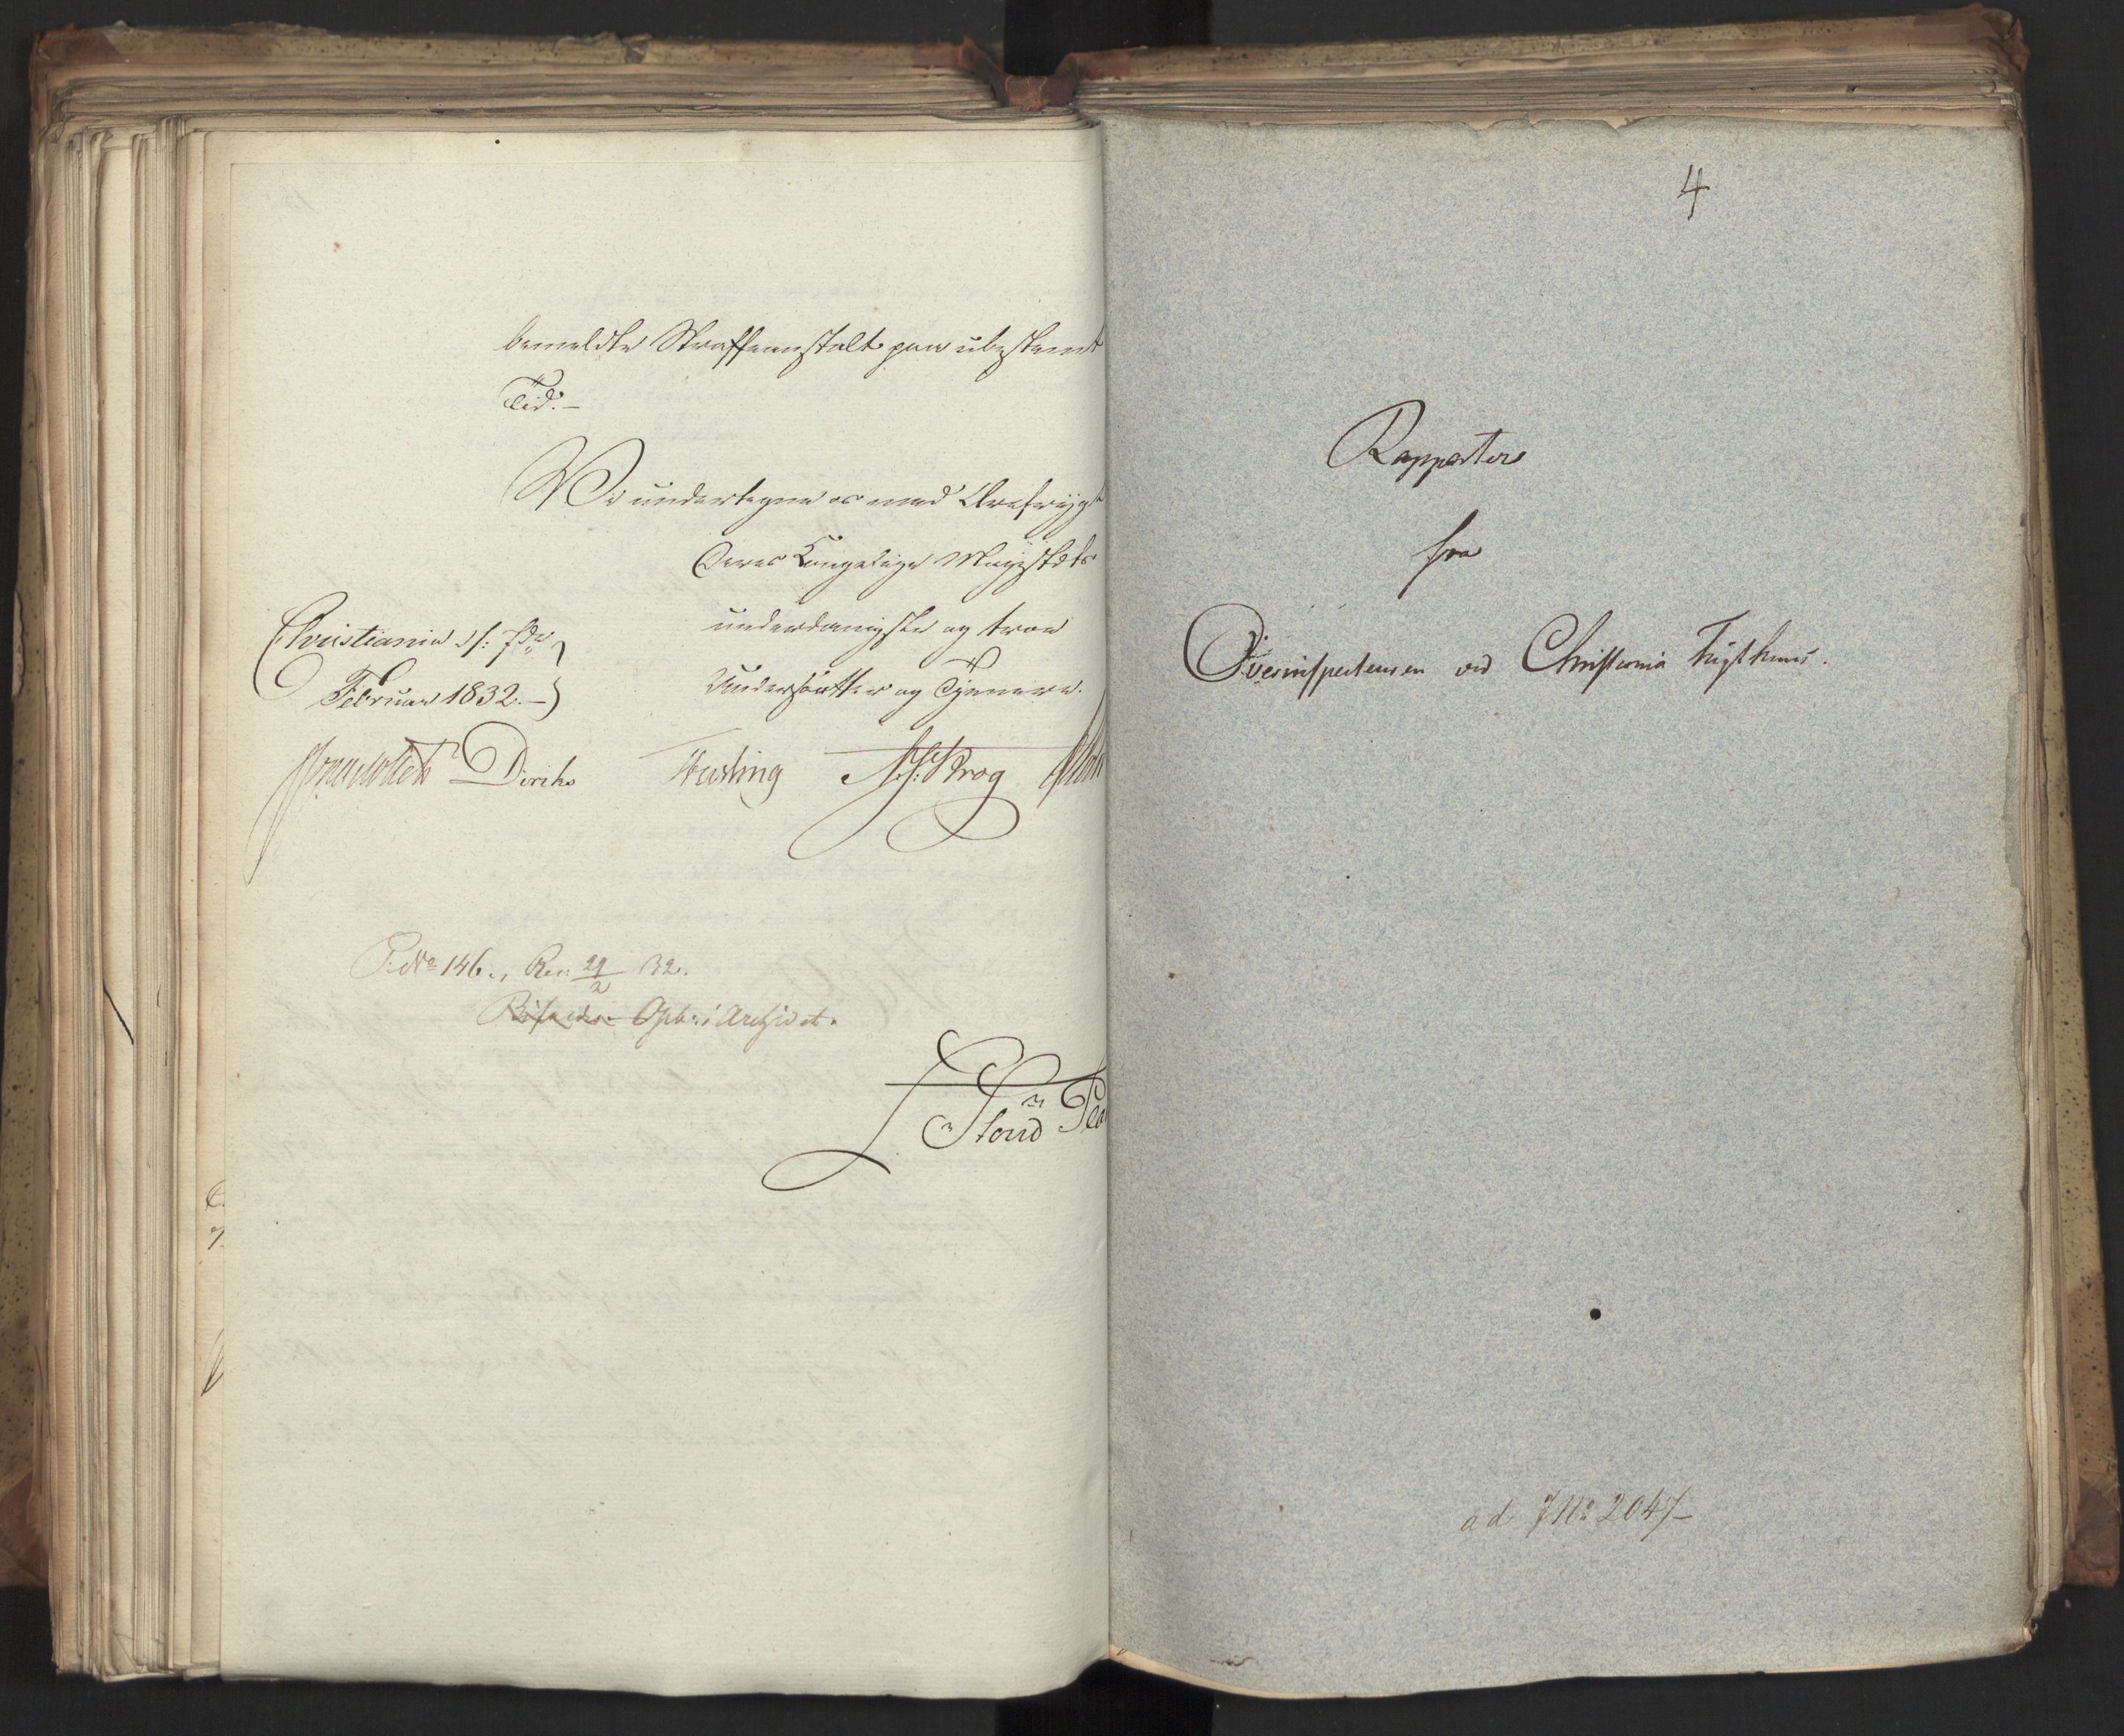 bemeldte Straffeanstalt paa ubestemt
Tid.-
Vi undertegne os med Ærefrygt
Deres Kongelige Majestæts
underdanigste og troe
Undersåtter og Tjenere.
Christiania d:
Februar 1832.-
Diriks Hesting Krog
No 146., Rev: 29/2 32.
Opb: i Archivet.
4
Rapporter
fra
Overinspecteuren ved Christiania Tugthuus.
ad No 2047-